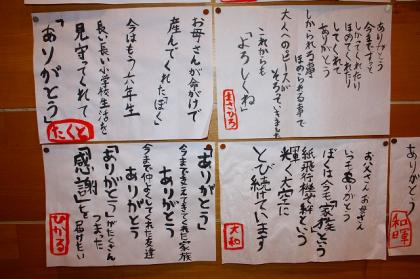 お母さんが命がけで
産んでくれたぼく
今はもう六年生
長い長い小学校生活を
見守ってくれて
「ありがとう」
たくと
ありがとう
今まですっと
しかってくれたり
ほめてくれたり
してくれて
ありがとう
しかられる事で
ほめられる事で
大人へのピースが
そろっていきました
これからも
「よろしくね」
まさひろ
「ありがとう」
今まで支えてきてくれた家族
ありがとう
今まで仲よくしてくれた友達
ありがとう
「ありがとう」がたくさん
つまった
「感謝」を
届けたい
ひかる
お父さんお母さん
いつもありがとう
ぼくは今「家族」という
紙飛行機で「絆」という
輝く大空に
とび続けています
大和
ありがとう
和暉